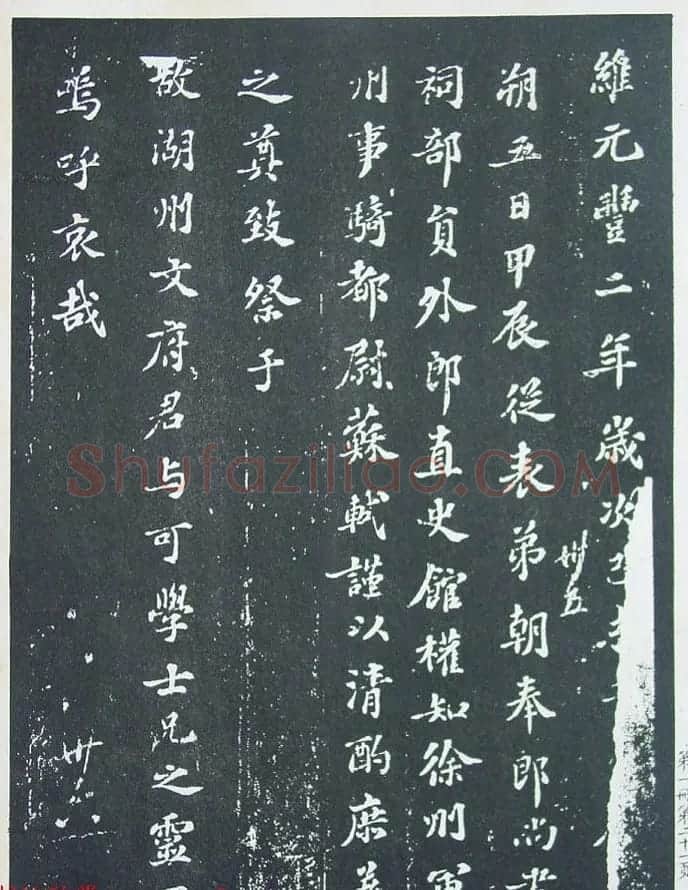 維元豐二年歲次
卅五
朔五日甲辰從表弟朝奉郎尚書
祠部員外郎直史館權知徐州軍
州事騎都尉蘇軾謹以清酌庶羞
之奠致祭于
故湖州文府君与可學士兄之靈
嗚呼哀哉
卅六
Shufaziliao.COM